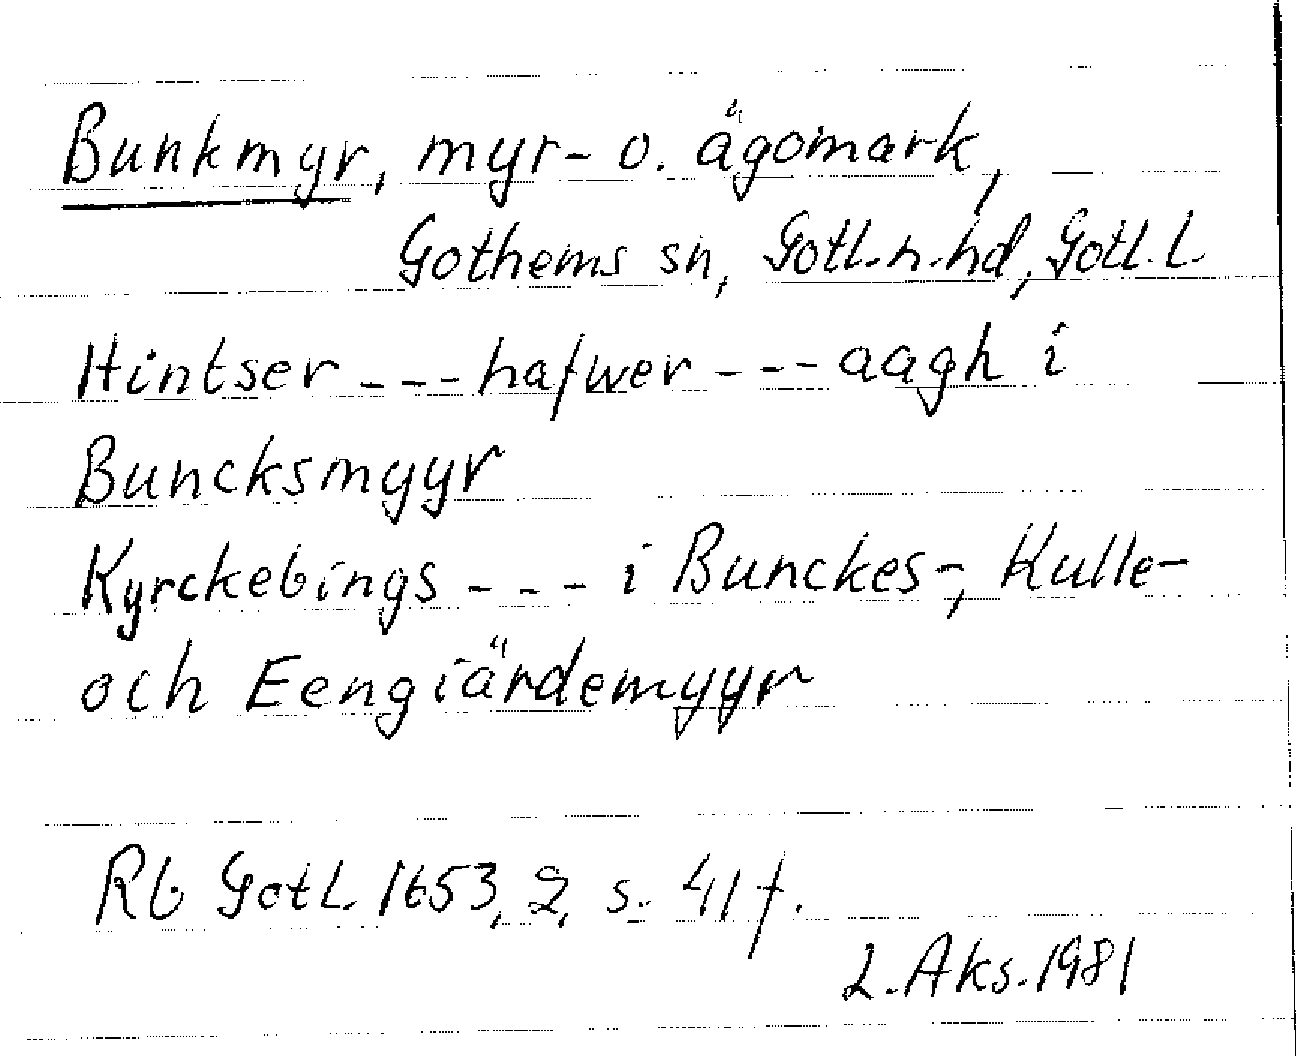 Bunkmyr, myr- o. ägomark,
Gothems sn, Gotl.n.hd, Gotl.l.
Hintser --- hafwer --- aagh i
Buncksmyyr
Kyrckebings --- i Bunckes-, Kulle-
och Eengiärdemyyr
Rb Gotl. 1653, 2, s. 41 f.
L. Aks. 1981